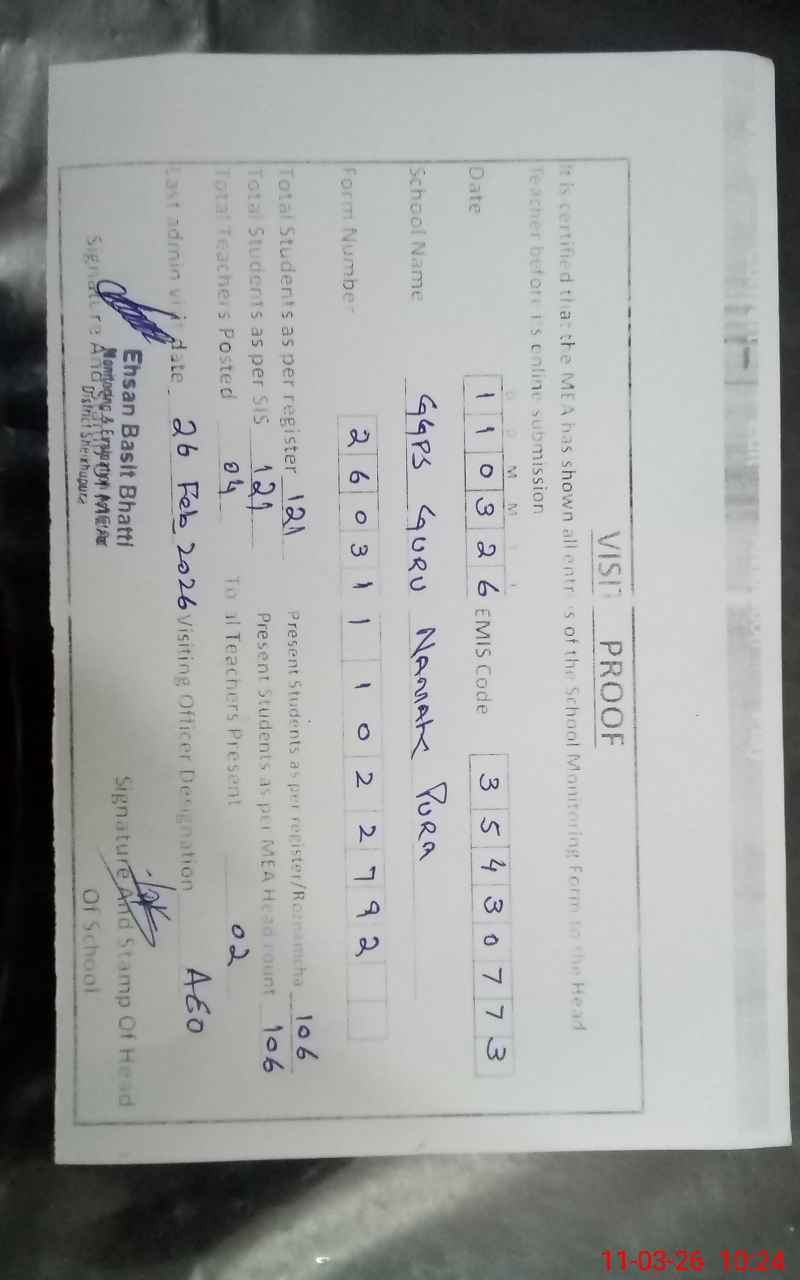 VISIT PROOF
It is certified that the MEA has shown all entries of the School Monitoring Form to the Head
Teacher before its online submission
D D M M Y Y
Date 1 1 0 3 2 6 EMIS Code 3 5 4 3 0 7 7 3
School Name GGPS GURU NANNAK PURA
Form Number 2 6 0 3 1 1 1 0 2 2 7 9 2
Total Students as per register 121 Present Students as per register/Roznamcha 106
Total Students as per SIS 121 Present Students as per MEA Head count 106
Total Teachers Posted 04 Total Teachers Present 02
Last admin visit date 26 Feb 2026 Visiting Officer Designation AEO
Ehsan Basit Bhatti
Monitoring & Evaluation
District Sheikhupura
Signature And MEA
Signature And Stamp Of Head
Of School
11-03-26 10:24